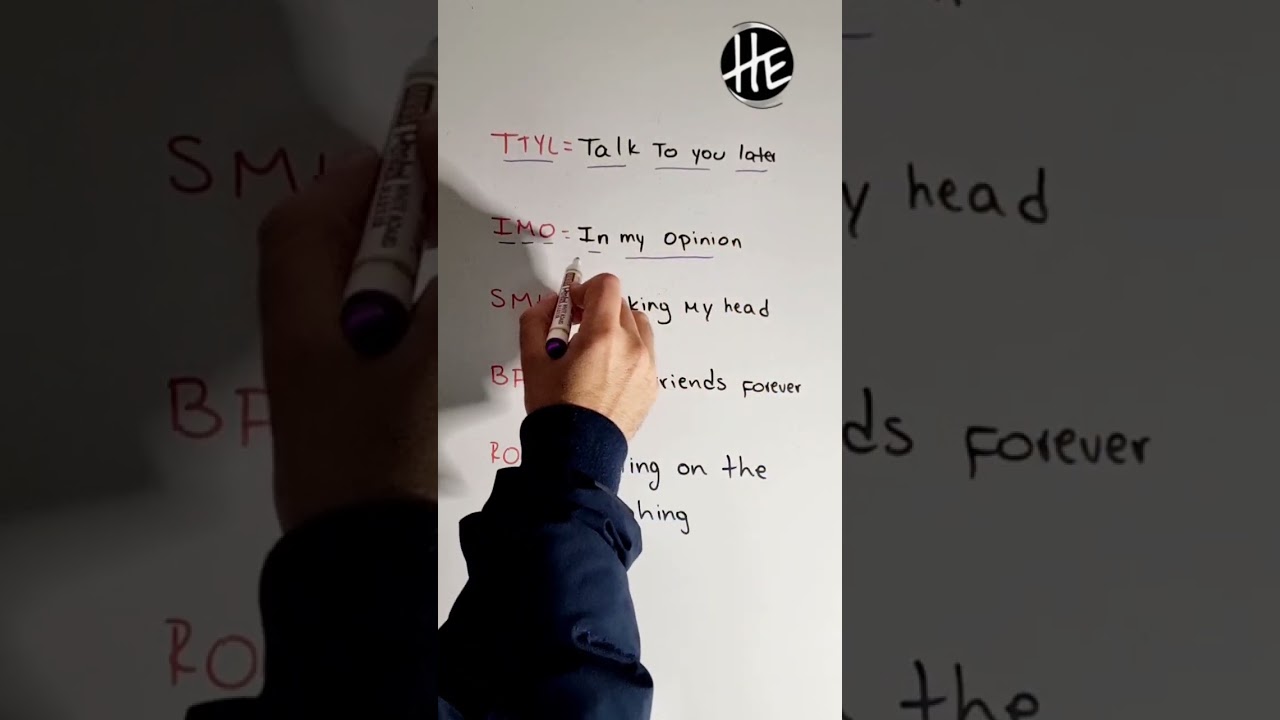 HE
TTYL = Talk To you later
IMO = In my opinion
SM king My head
BF riends Forever
RO ing on the
hing